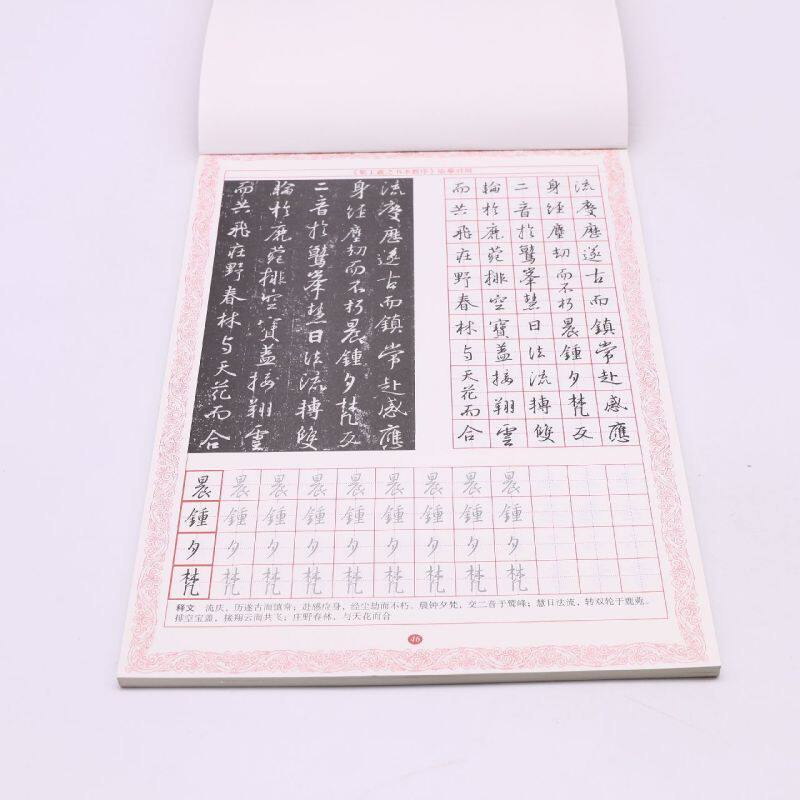 《集王羲之书圣教序》临摹
流慶歷遂古而鎮常赴感應
身經塵劫而不朽晨鍾夕梵交
二音於鷲峯慧日法流轉雙
輪於鹿菀排空寶蓋接翔雲
而共飛莊野春林与天花而合
流慶歷遂古而鎮常赴感應
身經塵劫而不朽晨鍾夕梵交
二音於鷲峯慧日法流轉雙
輪於鹿菀排空寶蓋接翔雲
而共飛莊野春林与天花而合
晨晨晨晨晨晨晨晨晨
鍾鍾鍾鍾鍾鍾鍾鍾鍾
夕夕夕夕夕夕夕夕夕
梵梵梵梵梵梵梵梵梵
释文 流庆，历遂古而镇常；赴感应身，经尘劫而不朽。晨钟夕梵，交二音于鹫峰；慧日法流，转双轮于鹿菀。
排空宝盖，接翔云而共飞；庄野春林，与天花而合
46